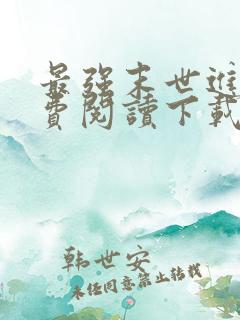 最强末世進
费閱讀下載
韩世安
未经同意禁止转载